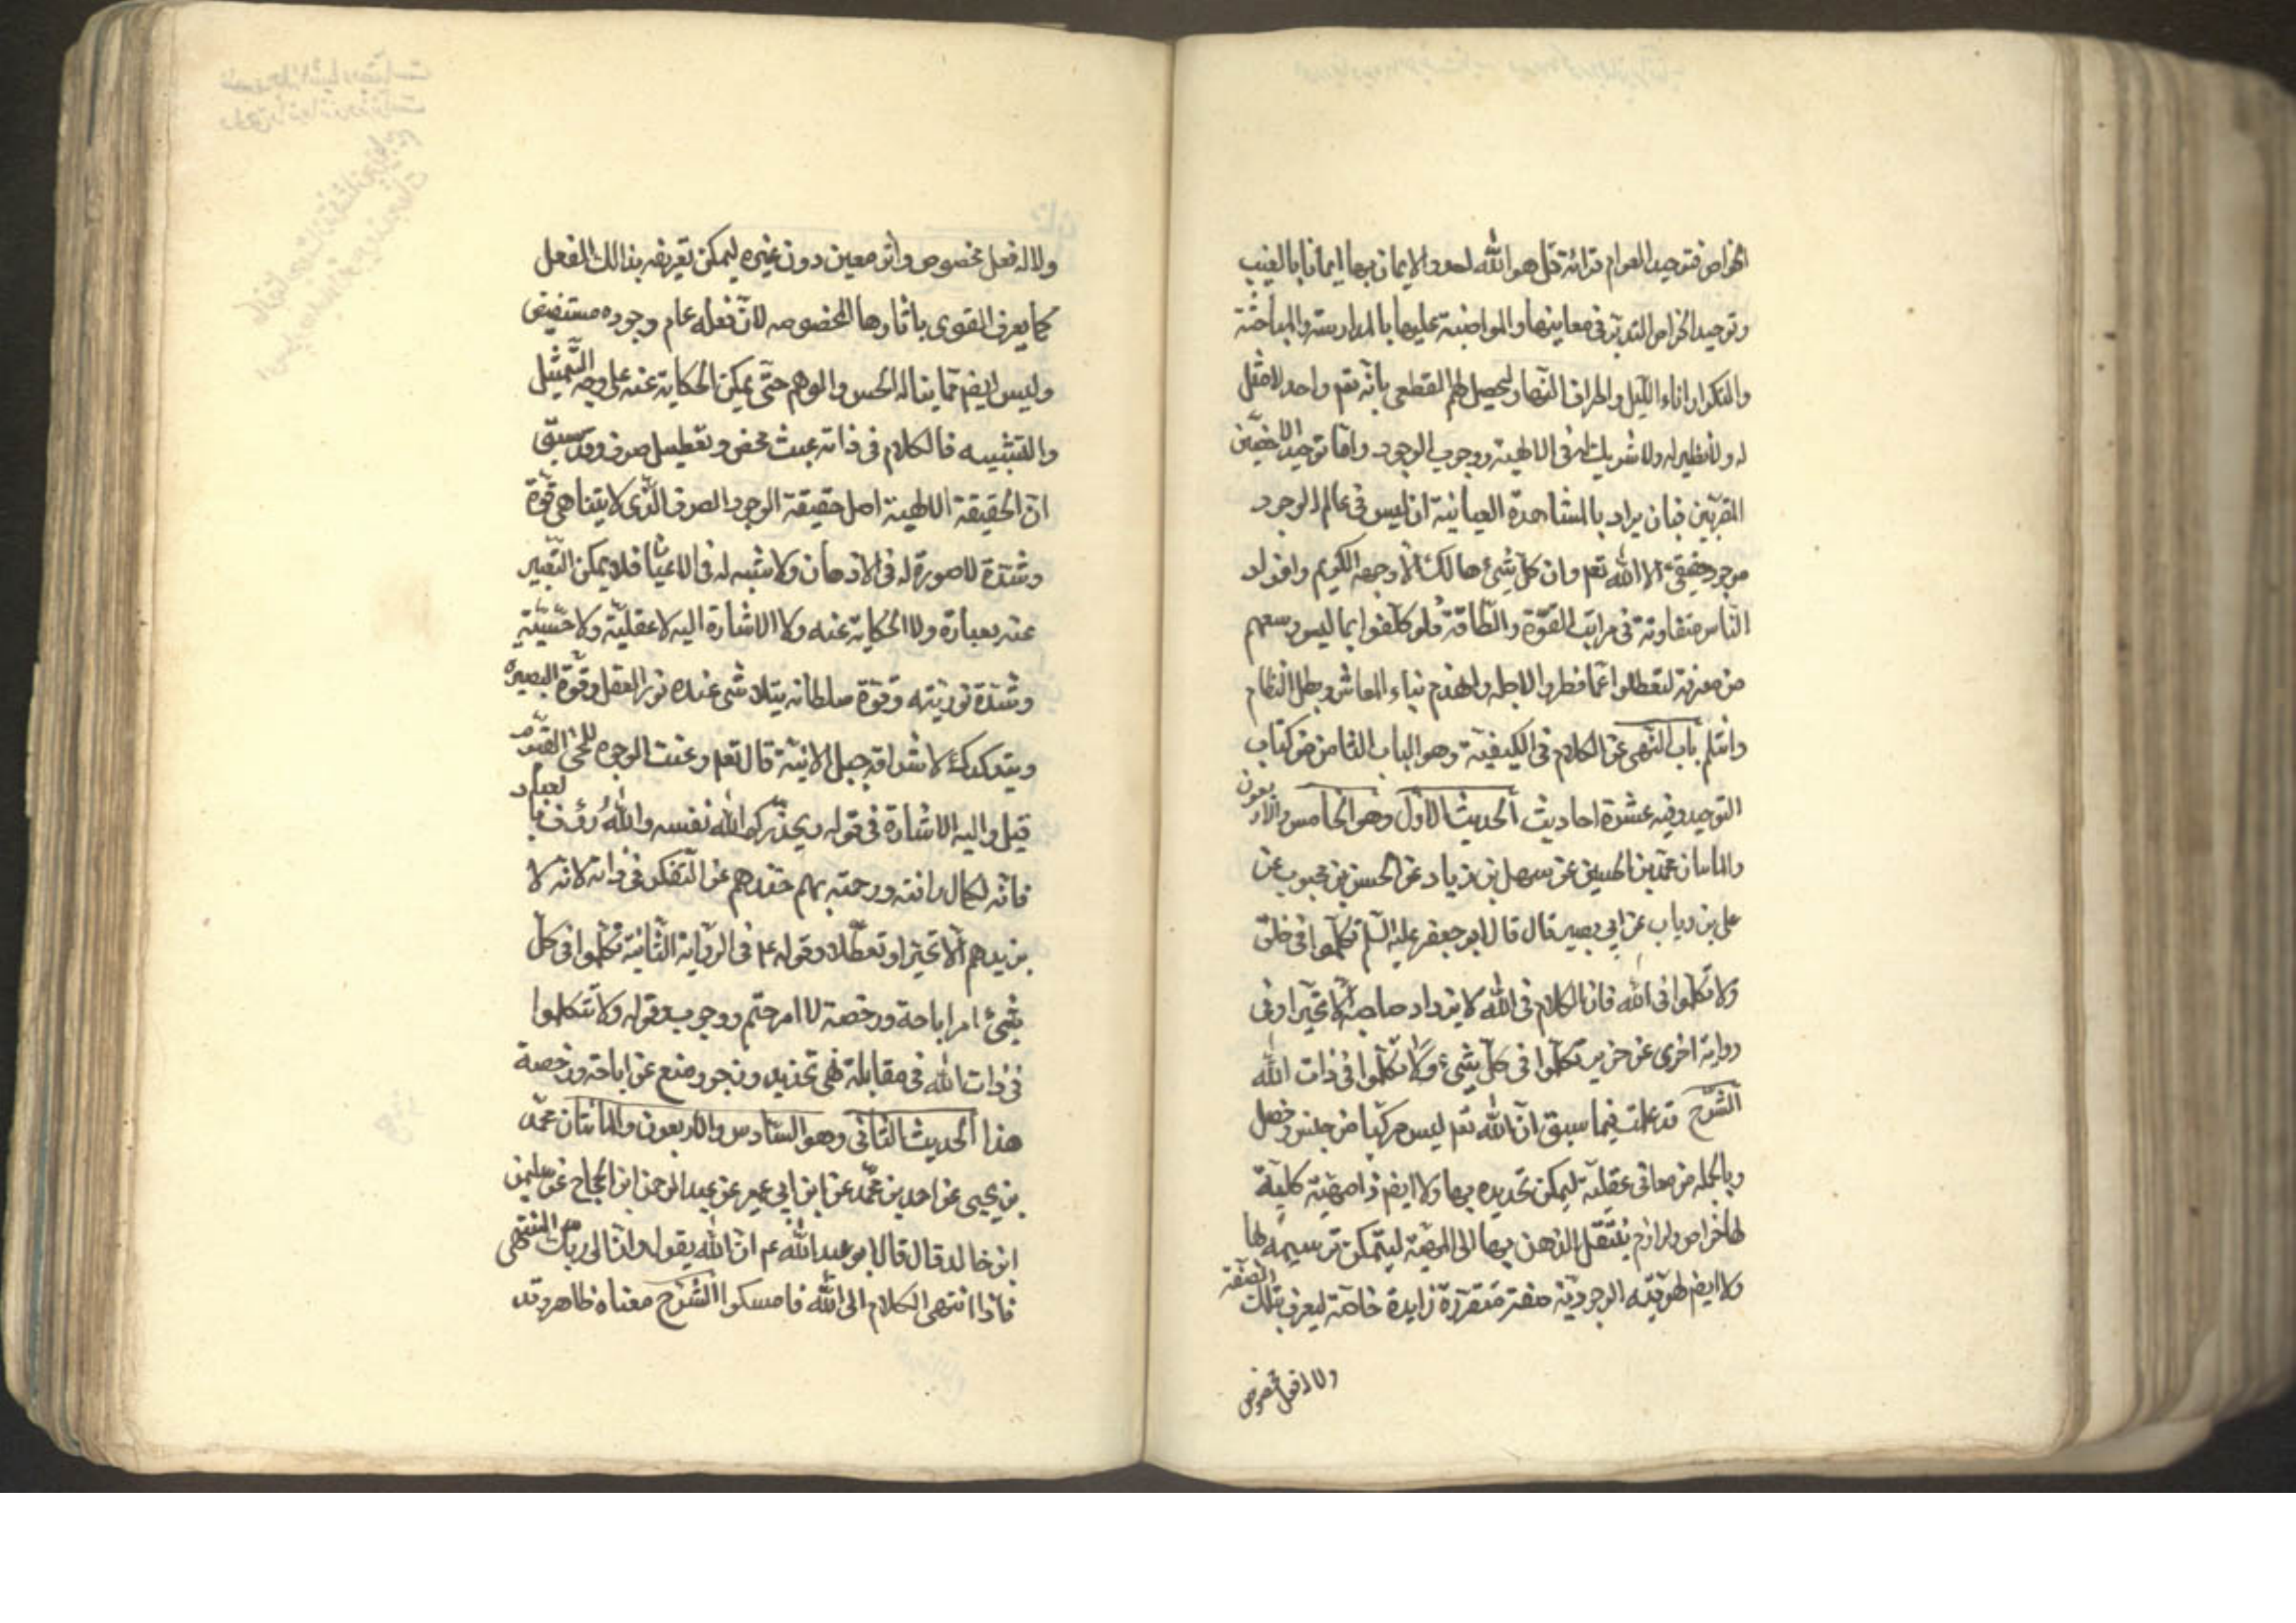 الخواص فتوحيد العوام قرائة قل هو الله احد والايمان بها ايمانا بالغيب
وتوحيد الخواص التدبر في معانيها والمواضبة عليها بالمدارسة والمباحثة
والتكرار اناء الليل واطراف النهار ليحصل لهم القطعي بانه تعم واحد لا مثل
له ولا نظير له ولا شريك له في الالهية ووجوب الوجود واما توحيد الاخصين
المقربين فبان يراد بالمشاهدة العيانية ان ليس في عالم الوجود
موجود حقيقي الا الله تعم وان كل شيء هالك الا وجهه الكريم وافراد
الناس متفاوتة في مراتب القوة والطاقة فلو كلفوا بما ليس وسعهم
من معرفة لتعطلوا عما فطروا لاجله وانهدم بناء المعاش وبطل النظام
وانثلم باب النهي عن الكلام في الكيفية وهو الباب الثامن من كتاب
التوحيد وفيه عشرة احاديث الحديث الاول وهو الخامس والاربعون
والماتان محمد بن الحسين عن سهل بن زياد عن الحسن بن محبوب عن
علي بن رياب عن ابي بصير قال قال ابو جعفر عليه السلم تكلموا في خلق
ولا تكلموا في الله فان الكلام في الله لا يزداد صاحبه الا تحيرا وفي
رواية اخرى عن حريز تكلموا في كل شيء ولا تكلموا في ذات الله
الشرح قد علمت فيما سبق ان الله تعم ليس مركبا من جنس وفصل
وبالجملة من معاني عقلية ليمكن تحديده بها ولا ايضم ذا مهية كلية
لها خواص ولوازم ينتقل الذهن بها الى المهية ليتمكن ترسيمه لها
ولا ايضم لهويته الوجودية صفة متقررة زايدة خاصة ليعرف بتلك الصفة
ولا له فعل مخصوص
ولا له فعل مخصوص واثر معين دون غيره ليمكن تعريفه بذالك الفعل
كما يعرف القوى باثارها المخصوصه لان فعله عام وجوده مستفيض
وليس ايضم مما يناله الحس والوهم حتى يمكن الحكاية عنه على وجه التمثيل
والتشبيه فالكلام في ذاته عبث محض وتعطيل صرف وقد سبق
ان الحقيقة الالهية اصل حقيقة الوجود الصرف الذي لا يتناهى قوة
وشدة لا صورة له في الاذهان ولا شبه له في الاعيان فلا يمكن التعبير
عنه بعبارة ولا الحكاية عنه ولا الاشارة اليه لا عقلية ولا حسية
وشدة نوريته وقوة سلطانه يتلاشى عنده نور العقل وقوة البصيرة
ويتدكدك لاشراقه جبل الانية قال تعم وعنت الوجوه للحي القيوم
قيل واليه الاشارة في قوله ويحذركم الله نفسه والله رؤف بالعباد
فانه لكمال رافته ورحمته بهم حذرهم عن التفكر في ذاته لانه لا
يزيدهم الا تحيرا وتعطلا وقوله ع في الرواية الثانية تكلموا في كل
شيء امر اباحة ورخصة لا امر حتم ووجوب وقوله ولا تتكلموا
في ذات الله في مقابلة نهي تحذير وزجر ومنع عن اباحة ورخصة
هذا الحديث الثاني وهو السادس والاربعون والماتان محمد
بن يحيى عن احمد بن محمد عن ابن ابي عمير عن عبد الرحمن ابن الحجاج عن سليمن
ابن خالد قال قال ابو عبد الله عم ان الله يقول وان الى ربك المنتهى
فاذا انتهى الكلام الى الله فامسكوا الشرح معناه ظاهر وقد